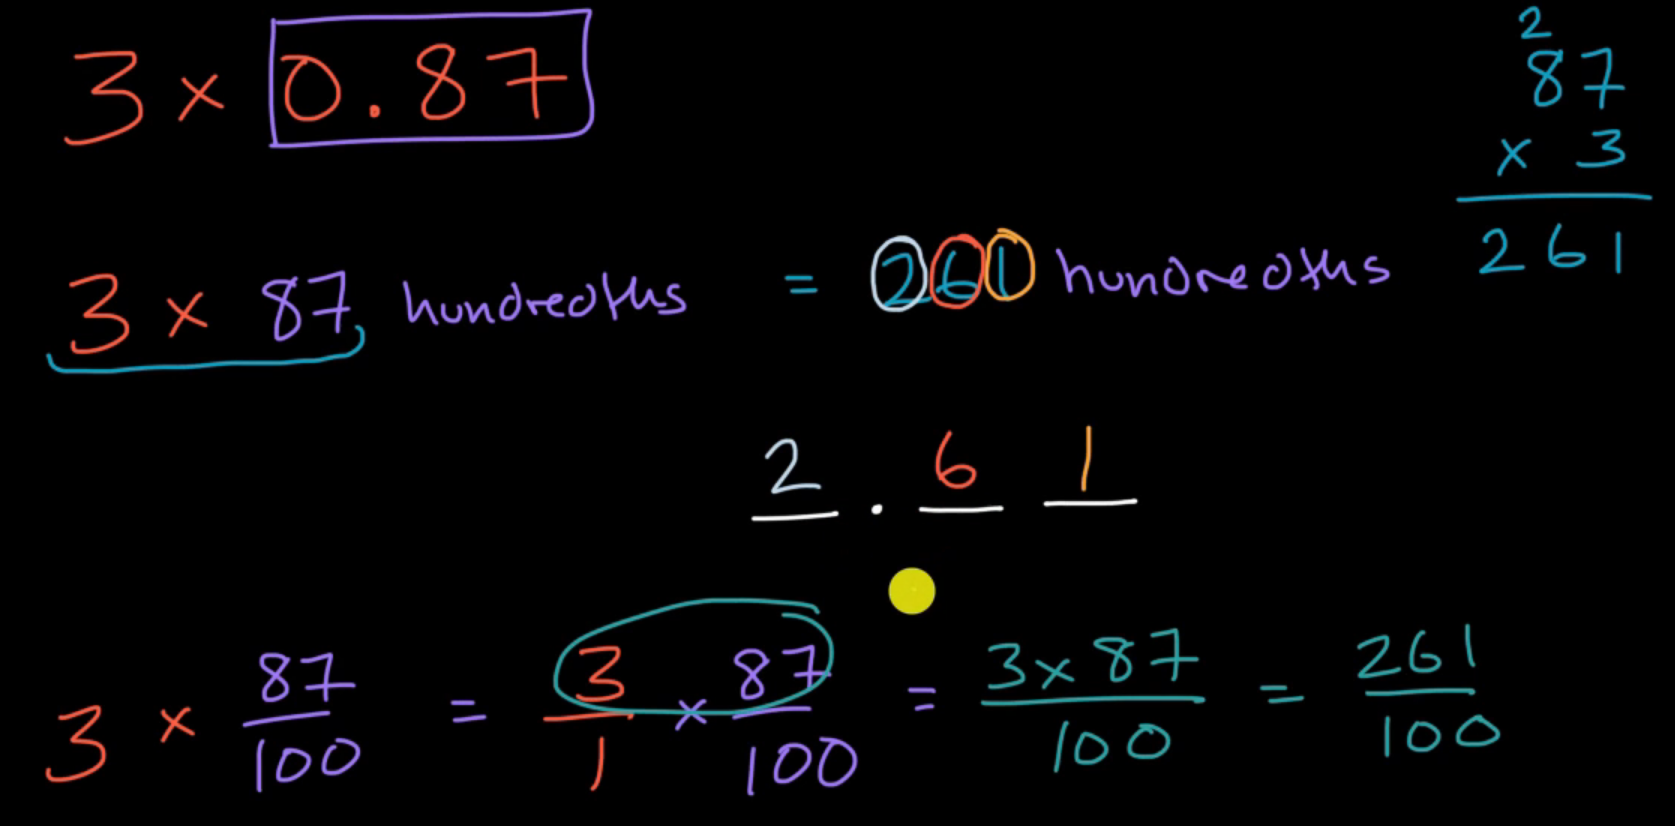 3 × 0.87
2
87
× 3
261
3 × 87 hundredths = 261 hundredths
2 . 6 1
3 × 87/100 = 3/1 × 87/100 = 3×87/100 = 261/100